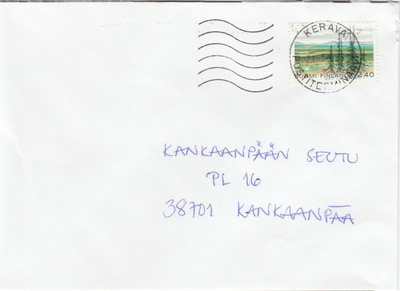 KERAVA
POSTITERMINAALI
SUOMI FINLAND 2,40
KANKAANPÄÄN SEUTU
PL 16
38701 KANKAANPÄÄ